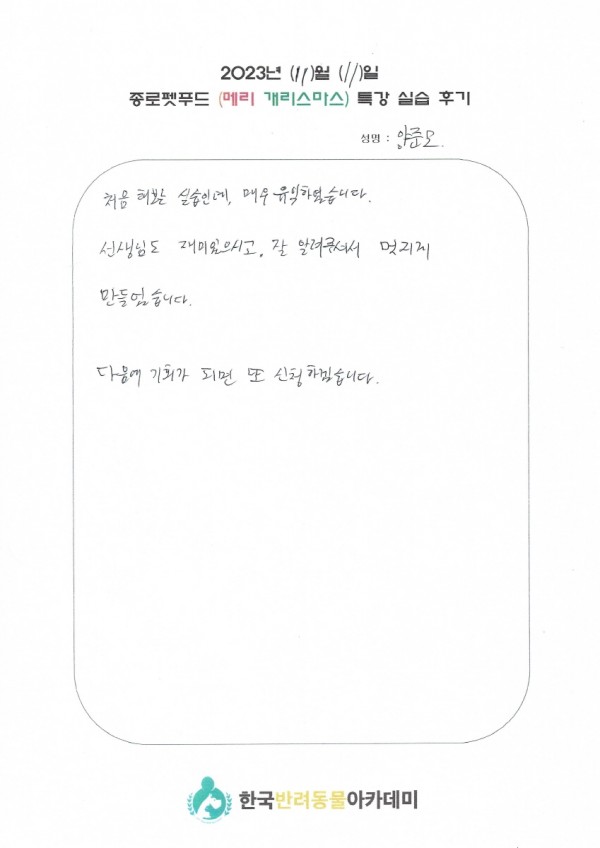 2023년 (11)월 (11)일
종로펫푸드 (메리 개리스마스) 특강 실습 후기
성명 : 양준모
처음 해본 실습인데, 매우 유익하였습니다.
선생님도 재미있으시고, 잘 알려주셔서 멋지게
만들었습니다.
다음에 기회가 되면 또 신청하겠습니다.
한국반려동물아카데미